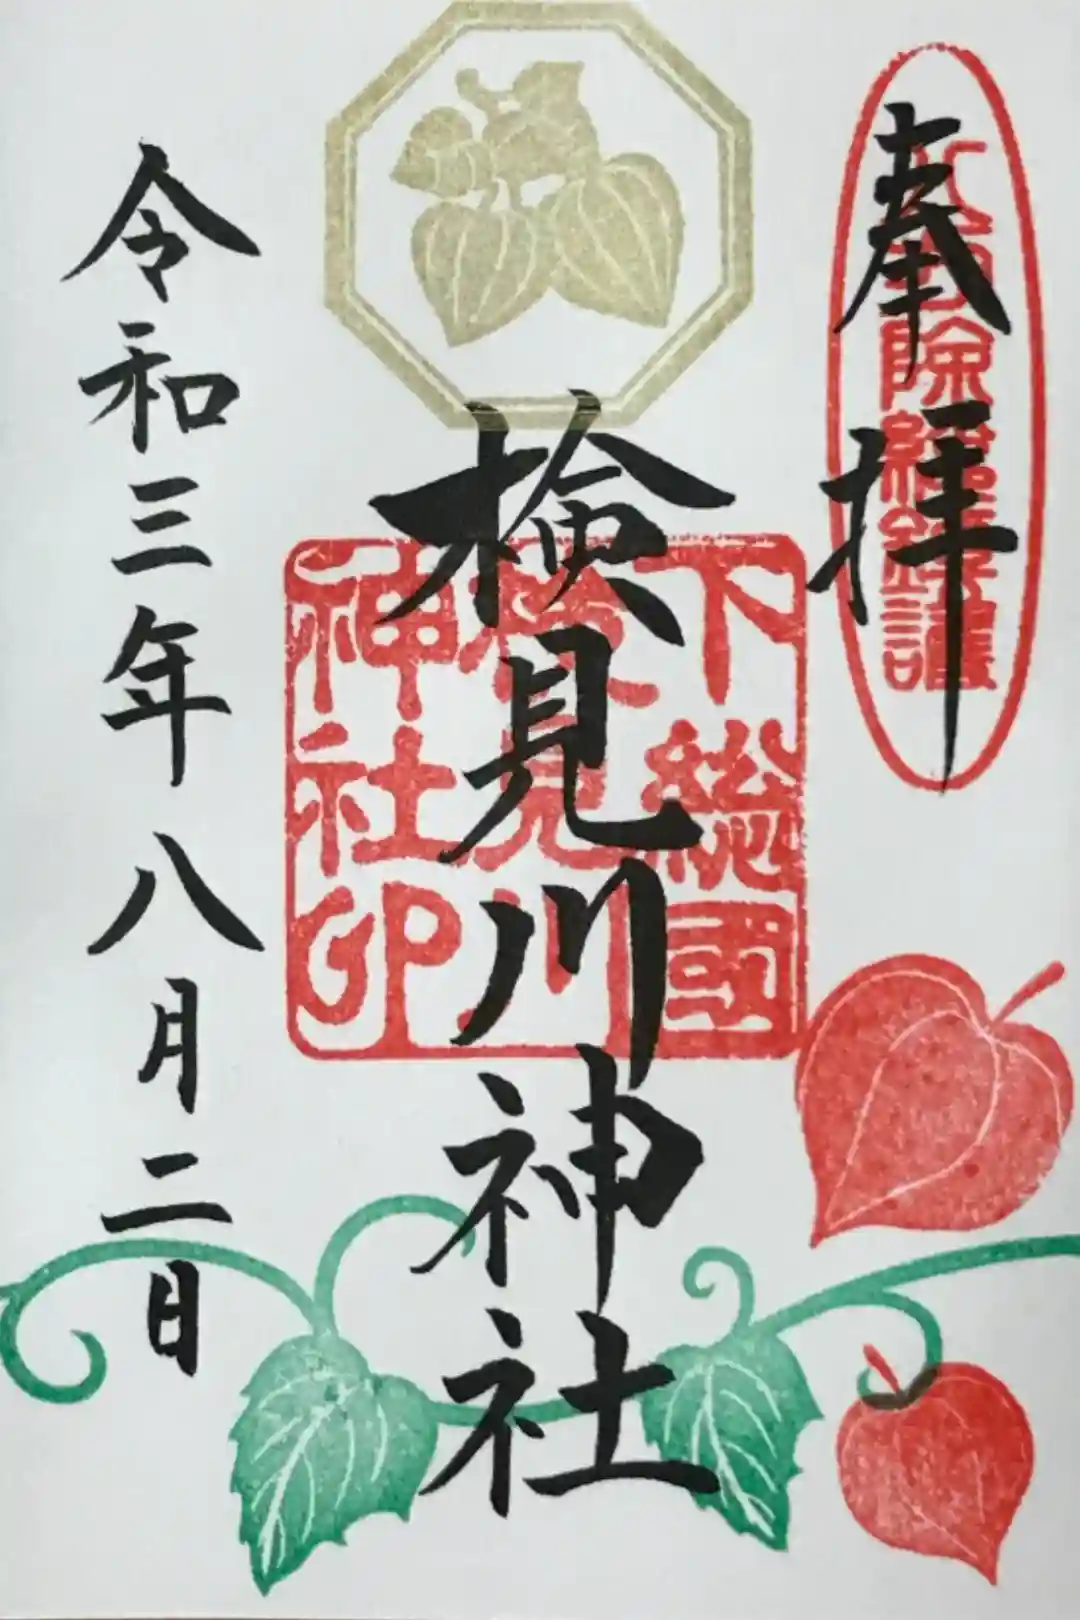 奉拝
八方除総鎮護
検見川神社
下総國
検見川
神社印
令和三年八月二日